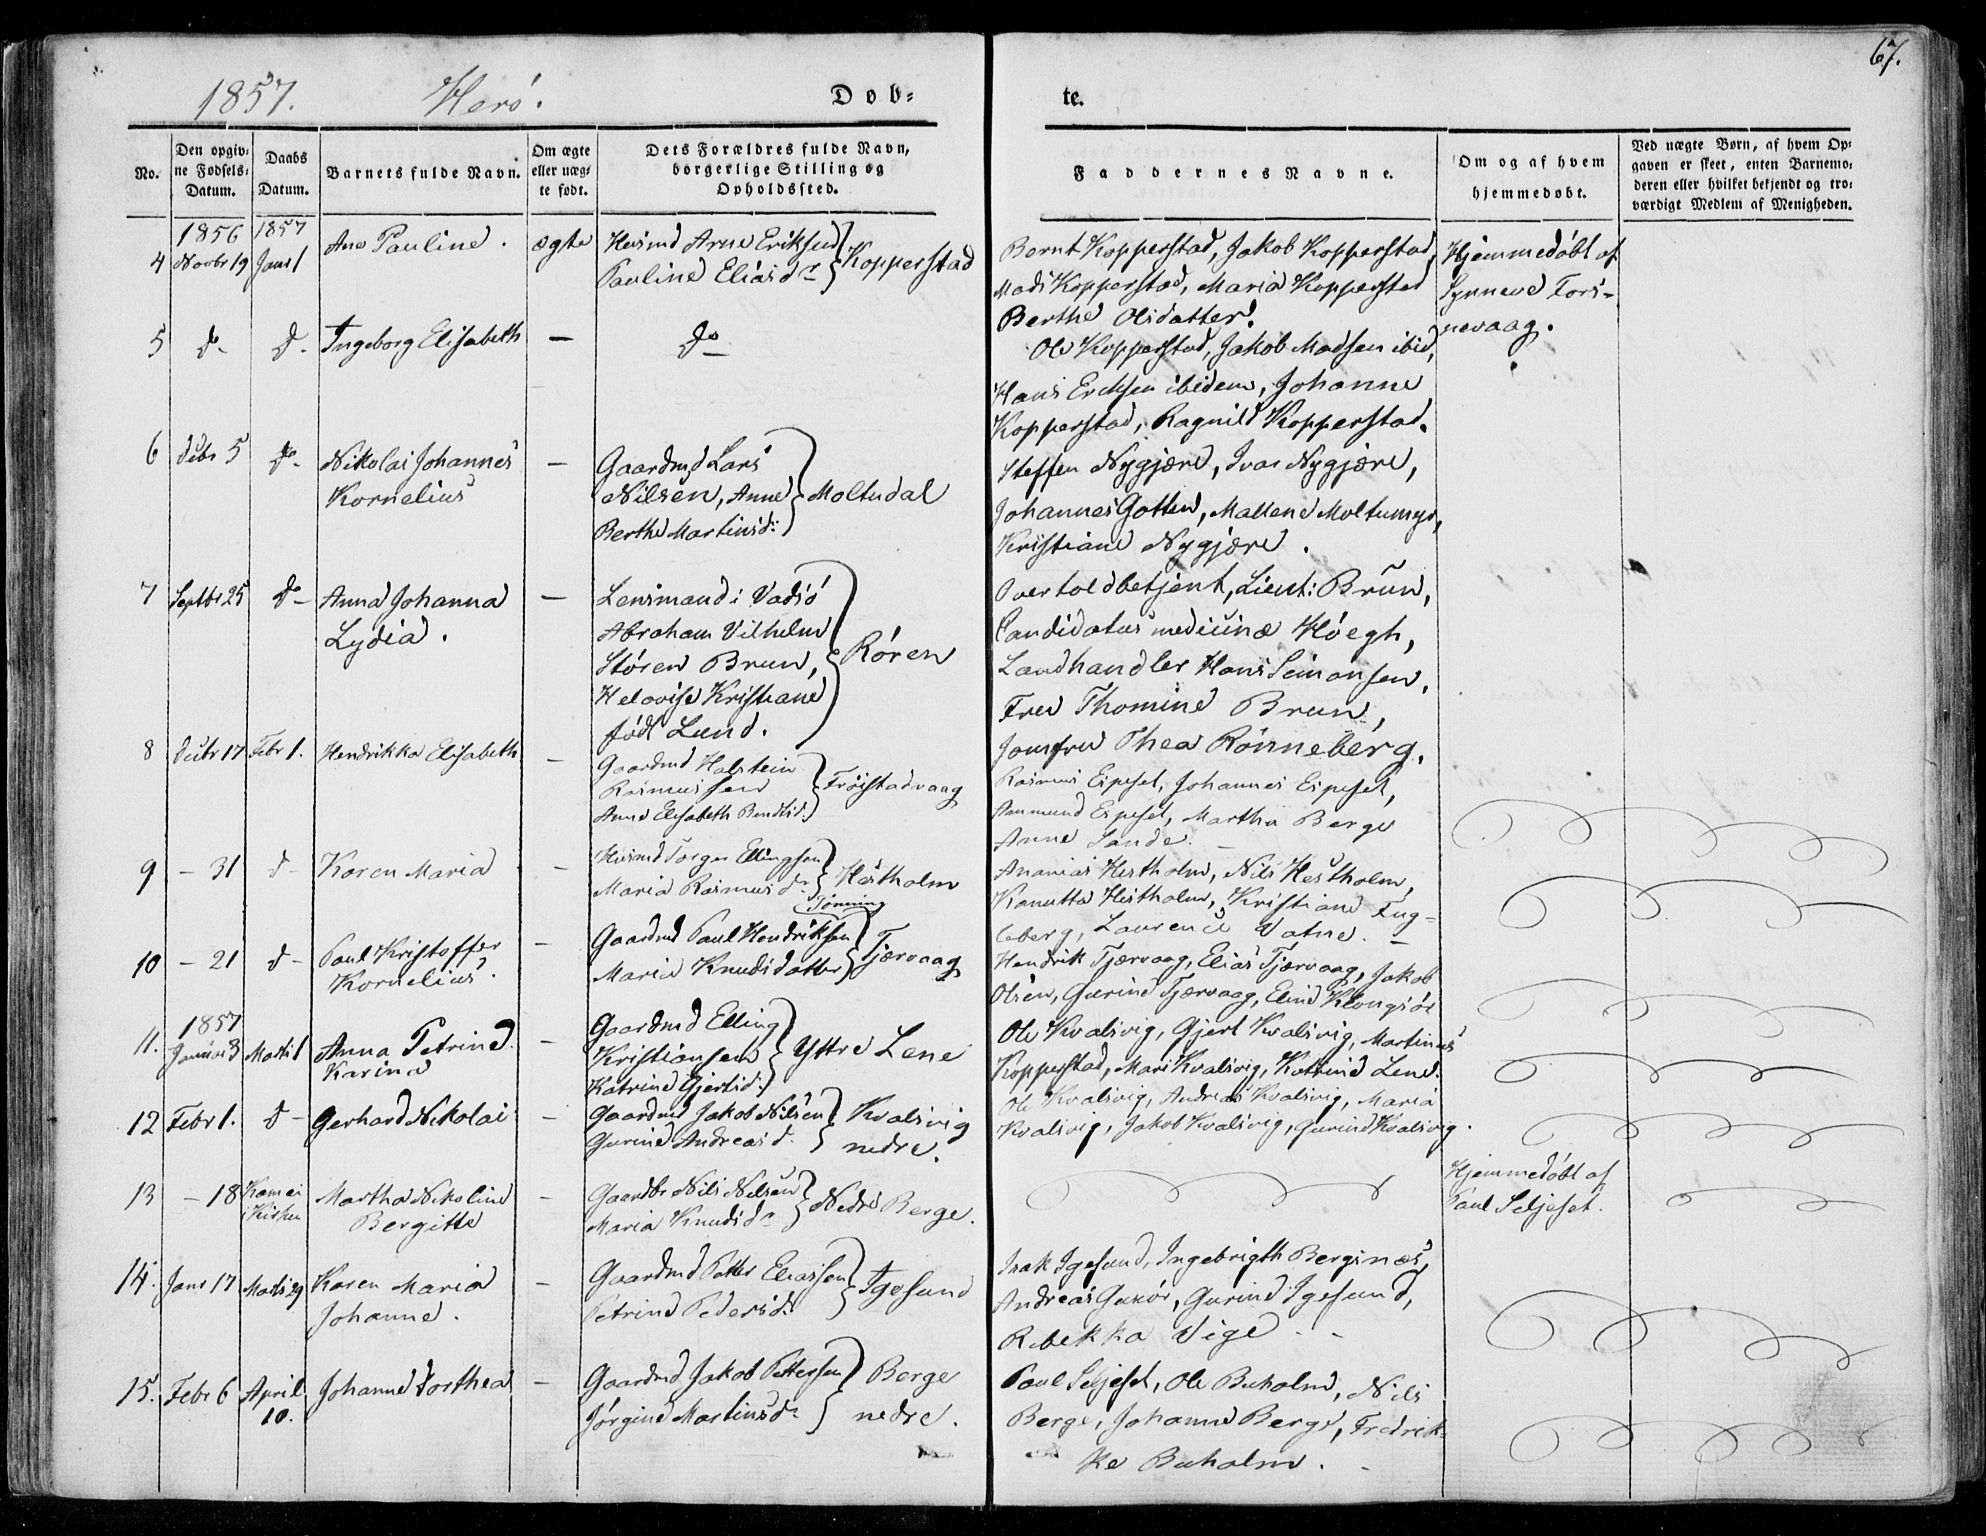 67.
1857. Herö. Døb-
te.
No.
Den opgiv-
ne Fødsels-
Datum.
Daabs
Datum.
Barnets fulde Navn.
Om ægte
eller uæg-
te født.
Dets Forældres fulde Navn,
borgerlige Stilling og
Opholdssted.
Faddernes Navne.
Om og af hvem
hjemmedøbt.
Ved uægte Børn, af hvem Op-
gaven er skeet, enten Barnemo-
deren eller hvilket bekjendt og tro-
værdigt Medlem af Menigheden.
1856 1857
4 Novbr 19 Janr 1 Ane Pauline. ægte Huusmd Arne Eriksen
Pauline Eliasdr } Kopperstad
Bernt Kopperstad, Jakob Kopperstad,
Mads Kopperstad, Maria Kopperstad
Berthe Olsdatter.
Hjemmedøbt af
Synneve Tors-
nevaag.
5 do- do- Ingeborg Elisabeth — do
Ole Kopperstad, Jakob Madsen ibid,
Hans Ericksen ibidem, Johanne
Kopperstad, Ragnild Kopperstad.
6 Decbr 5 do- Nikolai Johannes
Kornelius — Gaardmd Lars
Nilsen, Anne
Berthe Martinsd: } Moltudal
Steffen Nygjære, Ivar Nygjære,
Johannes Gotten, Mallene Moltumyr,
Kristiane Nygjære.
7 Septbr 25 do- Anna Johanna
Lydia. — Lensmand i Vadsö
Abraham Vilhelm
Stören Brun,
Helovise Kristiane
født Lund. } Røren
Overtoldbetjent, Lieut: Brun,
Candidatus medicinæ Høegh,
Landhandler Hans Simonsen,
Frue Thomine Brun,
Jomfru Thea Rönneberg.
8 Decbr 17 Febr 1. Hendrikka Elisabeth — Gaardmd Holstein
Rasmussen
Anne Elisabeth Bendtsd. } Frøistadvaag
Rasmus Eipeset, Johannes Eipeset,
Amund Eipeset, Martha Berge
Anne Sande. —
9 - 31 d- Karen Maria — Huusmd Torger Ellingsen
Maria Rasmusdr } Hestholm
Ananias Hestholm, Nils Hestholm,
Kanutta Hestholm, Kristiane Fug-
leberg, Laurence Vatne. —
Tønning
10 - 21 d- Paul Kristoffer
Kornelius. — Gaardmd Paul Hendriksen
Maria Knudsdatter } Tjærvaag
Hendrik Tjærvaag, Elias Tjærvaag, Jakob
Olsen, Gurine Tjærvaag, Eline Klongsör
1857
11. Januar 3 Marts 1 Anna Petrine
Karine — Gaardmd Elling
Kristiansen
Katrine Gjertsd. } Yttre Lene
Ole Kvalsvig, Gjert Kvalsvig, Martinus
Kopperstad, Mari Kvalsvig, Katrine Lene.
12 Febr 1. d- Gerhard Nikolai — Gaardmd Jakob Nilsen
Gurine Andreasd. } Kvalsvig
nedre.
Ole Kvalsvig, Andreas Kvalsvig, Maria
Kvalsvig, Jakob Kvalsvig, Gurine Kvalsvig.
13 - 18 Kom ei
i Kirken Martha Nikoline
Bergitte — Gaardbr Nils Nilsen
Maria Knudsdr } Nedre Berge.
Hjemmedøbt af
Paul Seljeset.
14. Janr 17 Marts 29 Karen Maria
Johanne. — Gaardmd Petter Eliassen
Petrine Pedersd: } Igesund
Isak Igesund, Ingebrigth Bergsnæs,
Andreas Gurskör, Gurine Igesund,
Rebekka Vige. -
15. Febr 6 April
10. Johanne Dorthea — Gaardmd Jakob Pettersen
Jörgine Martinsdr } Berge
nedre.
Paul Seljeset, Ole Buholm, Nils
Berge, Johanne Berge, Fredrik-
ke Buholm. -